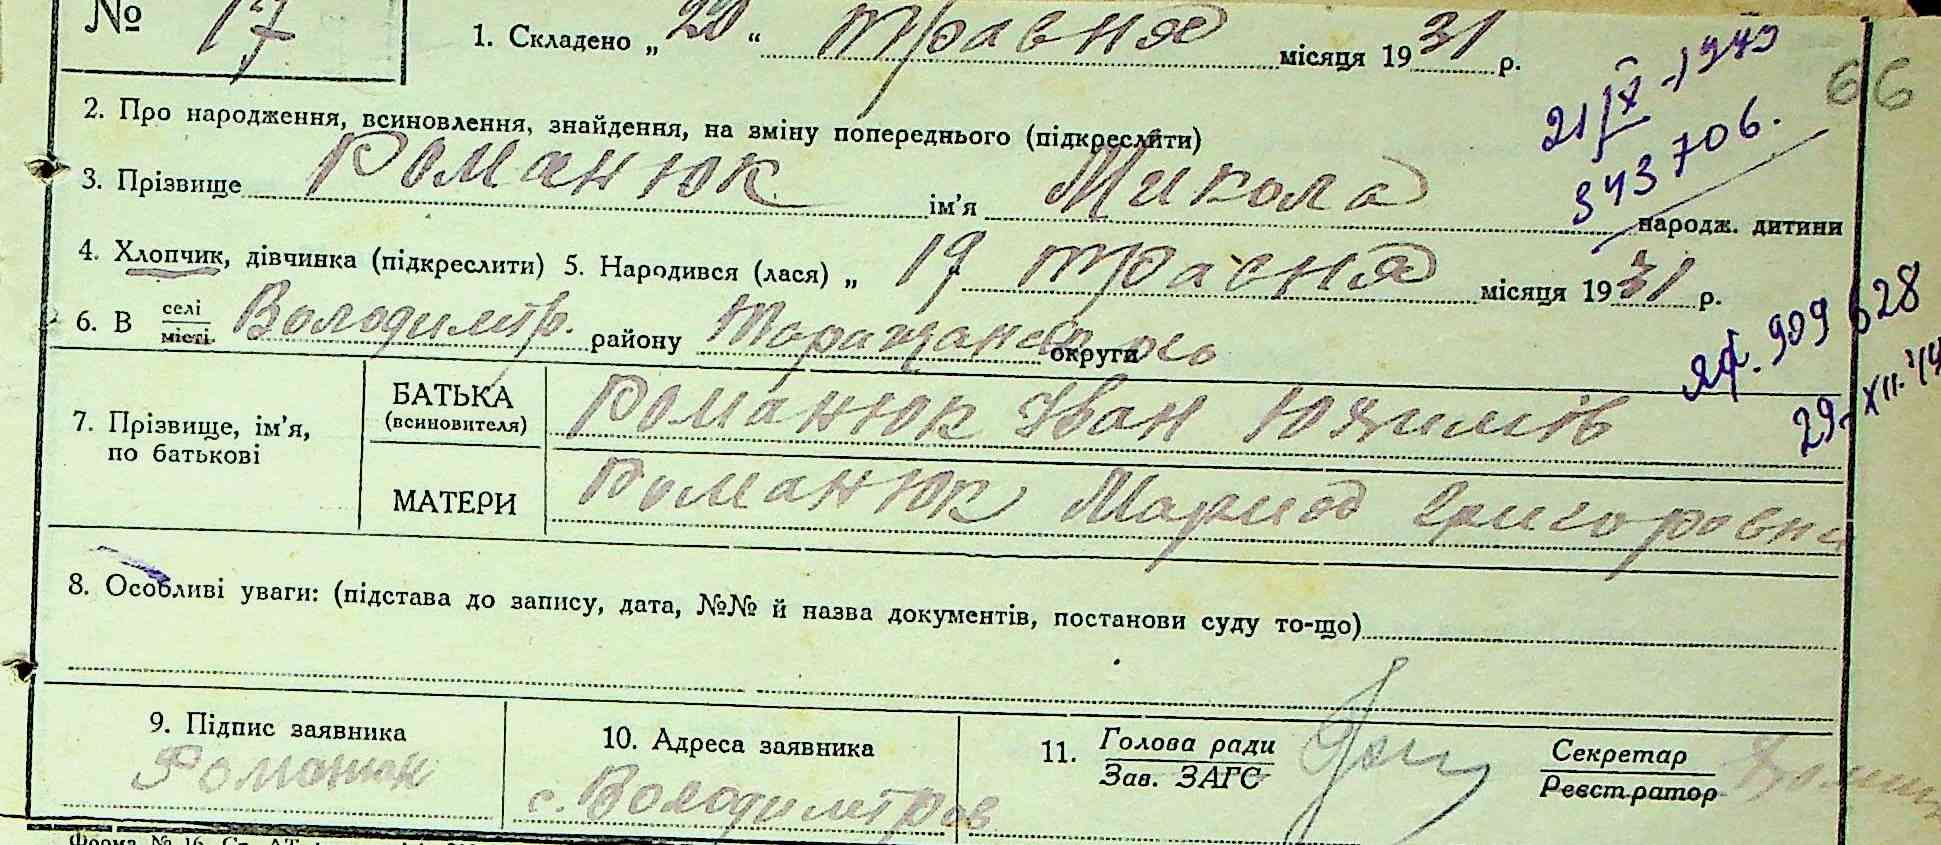 № 17 1. Складено „ 20 “ травня місяця 1931 р.
21/X-1949
66
2. Про народження, всиновлення, знайдення, на зміну попереднього (підкреслити)
343706.
3. Прізвище Романюк ім’я Микола народж. дитини
4. Хлопчик, дівчинка (підкреслити) 5. Народився (лася) „ 19 травня місяця 1931 р.
909628
6. В селі/місті Володимтр. району Таращанського округи
29-XII-
7. Прізвище, ім’я, по батькові
БАТЬКА (всиновителя) Романюк Іван Юхимів
МАТЕРИ Романюк Мария Григоровна
8. Особливі уваги: (підстава до запису, дата, №№ й назва документів, постанови суду то-що)
9. Підпис заявника
Романюк
10. Адреса заявника
с. Володимтров
11. Голова ради
Зав. ЗАГС
Секретар
Реєстратор
Форма № 16.